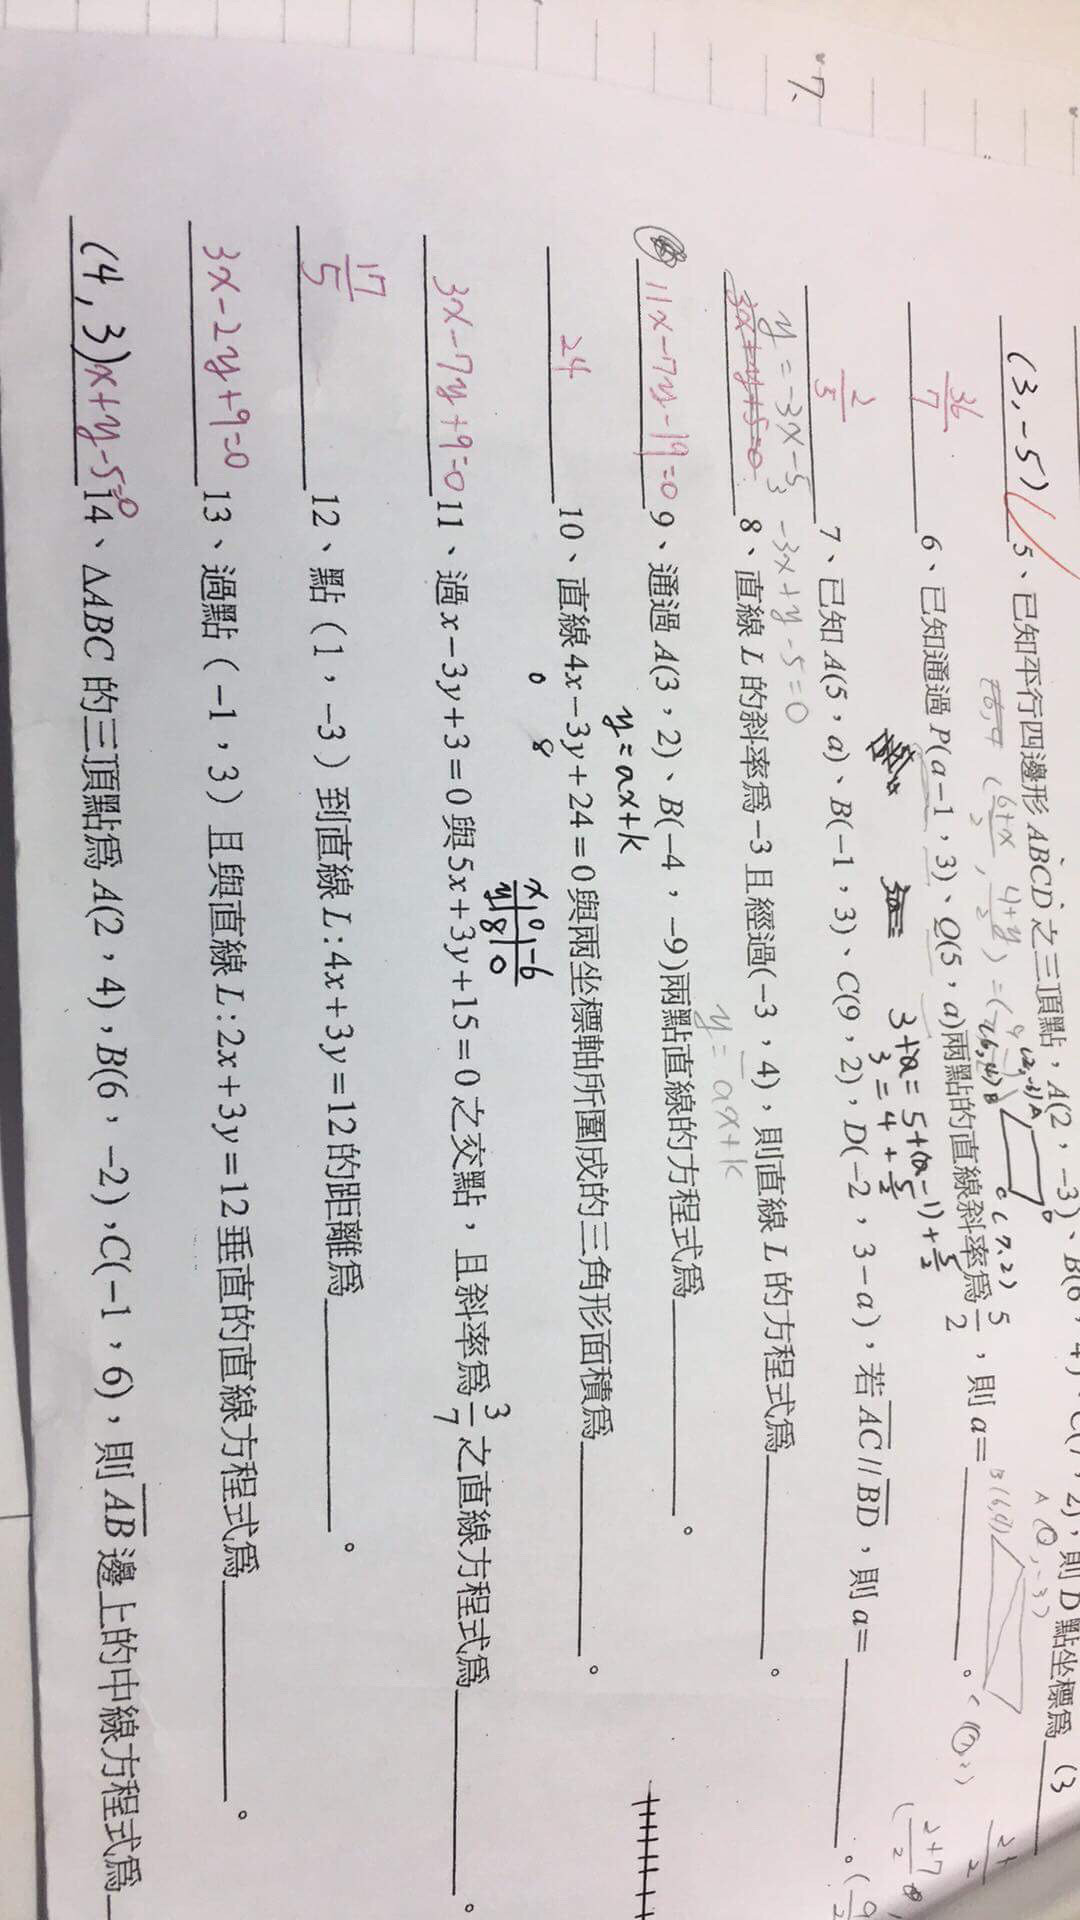 7、
(3,-5) 5、已知平行四邊形ABCD之三頂點,A(2,-3)、B(6,4)、C(7,2),則D點坐標為 (3
(6+x)/2 , (4+y)/2 ) = (
(2,-3)A
B
C(7,2)
D
A(2,-3)
B(6,4)
36/7 6、已知通過P(a-1,3)、Q(5,a)兩點的直線斜率為5/2,則a=____。
3+a=5+(a-1)+5/2
3=4+5/2
2+7/2
2/5 7、已知A(5,a)、B(-1,3)、C(9,2),D(-2,3-a),若AC//BD,則a=____。
y=-3x-5 -3x+y-5=0
3x+y+5=0 8、直線L的斜率為-3且經過(-3,4),則直線L的方程式為____。
y=ax+k
11x-7y-19=0 9、通過A(3,2)、B(-4,-9)兩點直線的方程式為____。
y=ax+k
24 10、直線4x-3y+24=0與兩坐標軸所圍成的三角形面積為____。
0 8
x 0 -6
y 8 0
3x-7y+9=0 11、過x-3y+3=0與5x+3y+15=0之交點,且斜率為3/7之直線方程式為____。
17/5 12、點(1,-3)到直線L:4x+3y=12的距離為____。
3x-2y+9=0 13、過點(-1,3)且與直線L:2x+3y=12垂直的直線方程式為____。
(4,3)x+y-5=0 14、ΔABC的三頂點為A(2,4),B(6,-2),C(-1,6),則AB邊上的中線方程式為